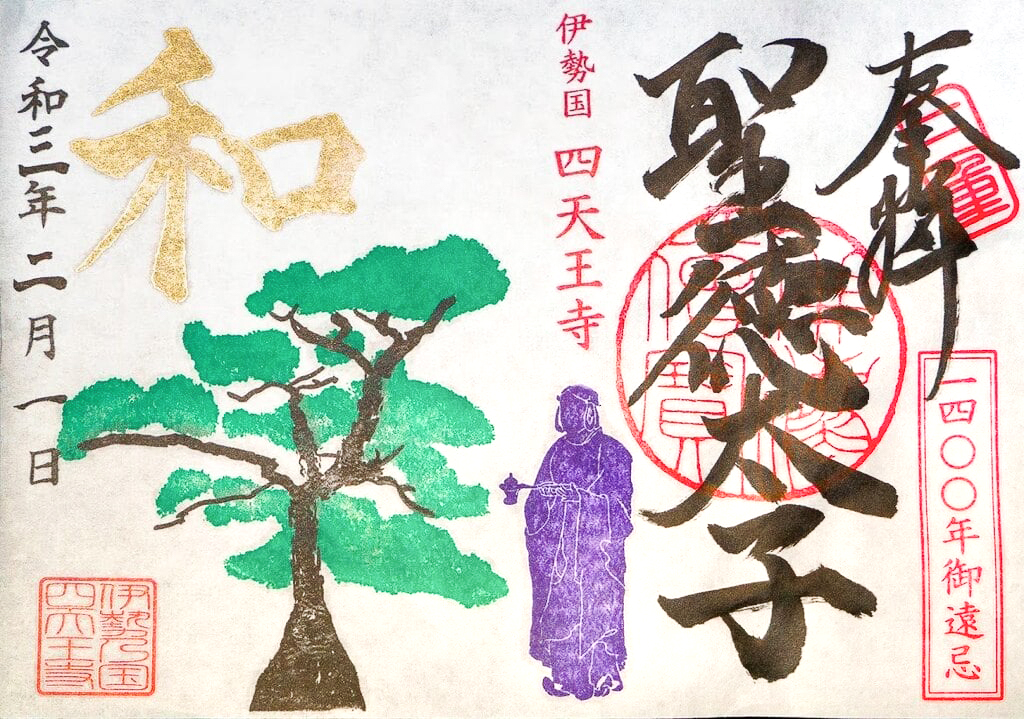 奉拝
三重
聖徳太子
一四〇〇年御遠忌
伊勢国 四天王寺
和
令和三年二月一日
伊勢乃国
四天王寺